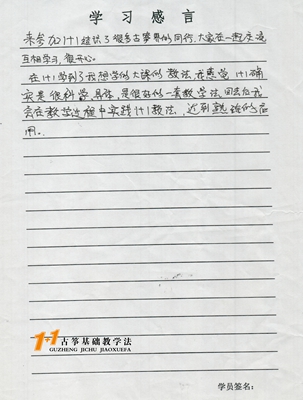 学习感言
来参加1+1组识了很多古筝界的同行,大家在一起交流
互相学习,很开心。
在1+1学到了我想学的大课的教法,我感觉1+1确
实是很科学具体,是很好的一套教学法,回去后我
会在教学过程中实践1+1教法,达到熟练的应
用。
1+1古筝基础教学法
GUZHENG JICHU JIAOXUEFA
学员签名: